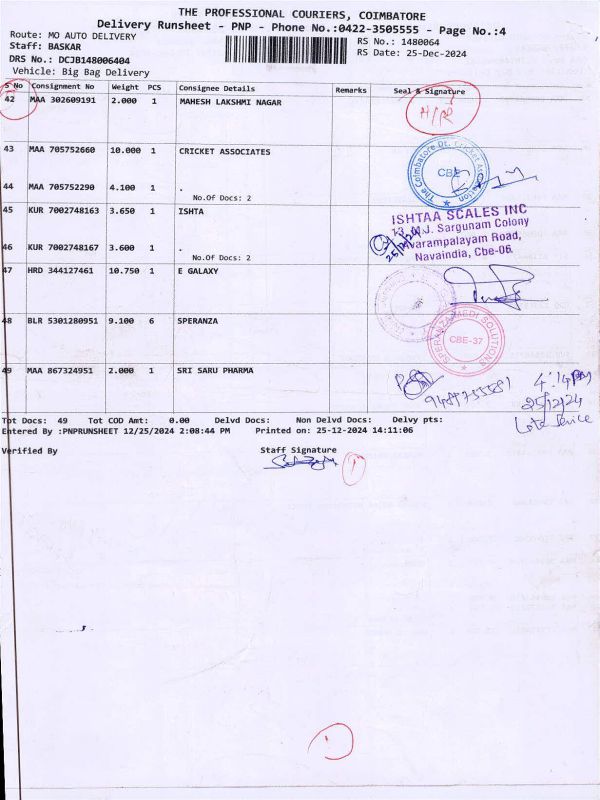 THE PROFESSIONAL COURIERS, COIMBATORE
Delivery Runsheet - PNP - Phone No.:0422-3505555 - Page No.:4
Route: MO AUTO DELIVERY
RS No.: 1480064
Staff: BASKAR
RS Date: 25-Dec-2024
DRS No.: DCJB148006404
Vehicle: Big Bag Delivery
S No Consignment No Weight PCS Consignee Details Remarks Seal & Signature
42 MAA 302609191 2.000 1 MAHESH LAKSHMI NAGAR
43 MAA 705752660 10.000 1 CRICKET ASSOCIATES
The Coimbatore Dt. Cricket Association
CBE
44 MAA 705752290 4.100 1 .
No.Of Docs: 2
45 KUR 7002748163 3.650 1 ISHTA
ISHTAA SCALES INC
13, V.J. Sargunam Colony
Avarampalayam Road,
Navaindia, Cbe-06.
25/12/24
46 KUR 7002748167 3.600 1 .
No.Of Docs: 2
47 HRD 344127461 10.750 1 E GALAXY
48 BLR 5301280951 9.100 6 SPERANZA
SPERANZA MEDI SOLUTIONS
CBE-37
49 MAA 867324951 2.000 1 SRI SARU PHARMA
4:14 PM
25/12/24
Tot Docs: 49 Tot COD Amt: 0.00 Delvd Docs: Non Delvd Docs: Delvy pts:
Entered By :PNPRUNSHEET 12/25/2024 2:08:44 PM Printed on: 25-12-2024 14:11:06
Verified By Staff Signature